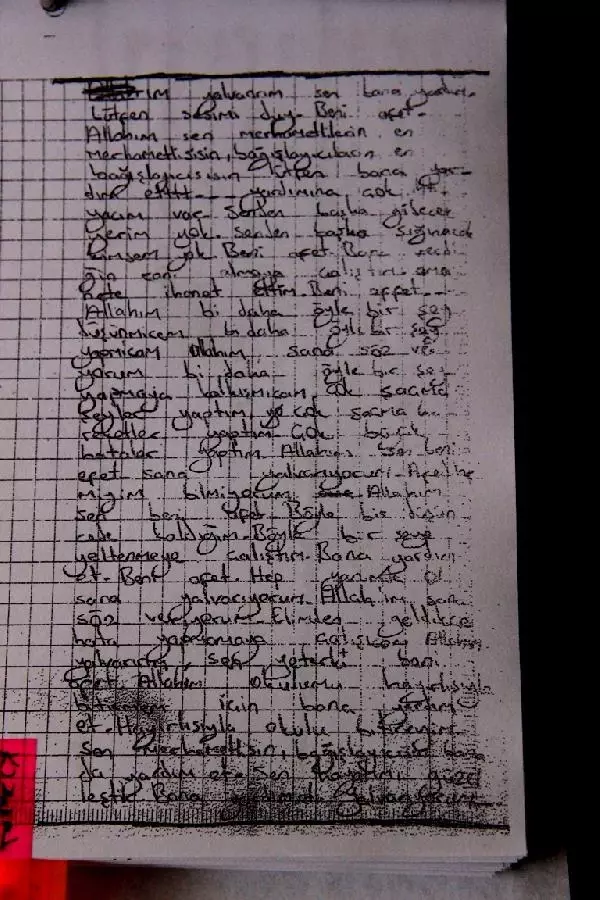 yalvarırım sen bana yardım
Lütfen sesimi duy. Beni afet.
Allahım sen merhametlilerin en
merhametlisisin, bağışlayıcıların en
bağışlayıcısısın lütfen bana yar-
dım et yardımına çok iht
yacım var senden başka gidecek
yerim yok. senden başka sığınacak
kimsem yok Beni afet Bana
ğin canı almaya çalıştım ama
hata ihanet ettim. Beni affet.
Allahım bi daha öyle bir şey
düşünmicem bi daha öyle bir şey
yapmicam Allahım sana söz ve
yorum bi daha öyle bir şey
yapmaya kalkışmıcam çok saçma
şeyler yaptım çok saçma
reketler yaptım çok büyük
hatalar yaptım Allahım sen beni
afet sana yalvarıyorum.
miyim bilmiyorum Allahım
sen beni afet Böyle bir
Böyle bir şeye
yeltenmeye çalıştım. Bana yardım
et. Beni afet. Hep yanımda ol
sana yalvarıyorum Allahım sana
söz veriyorum Elimden geldikce
hata yapmamaya çalışıcam Allahım
yalvarırım, sen yeterki beni
afet. Allahım okulumu hayırlısıyla
bitirmem için bana yardım
et. Hayırlısıyla okulu bitireyim
Sen merhametlisin, bağışlayıcısın bana
da yardım et. Sen hayatımı güzel
leştir Bana yardım et yalvarıyorum